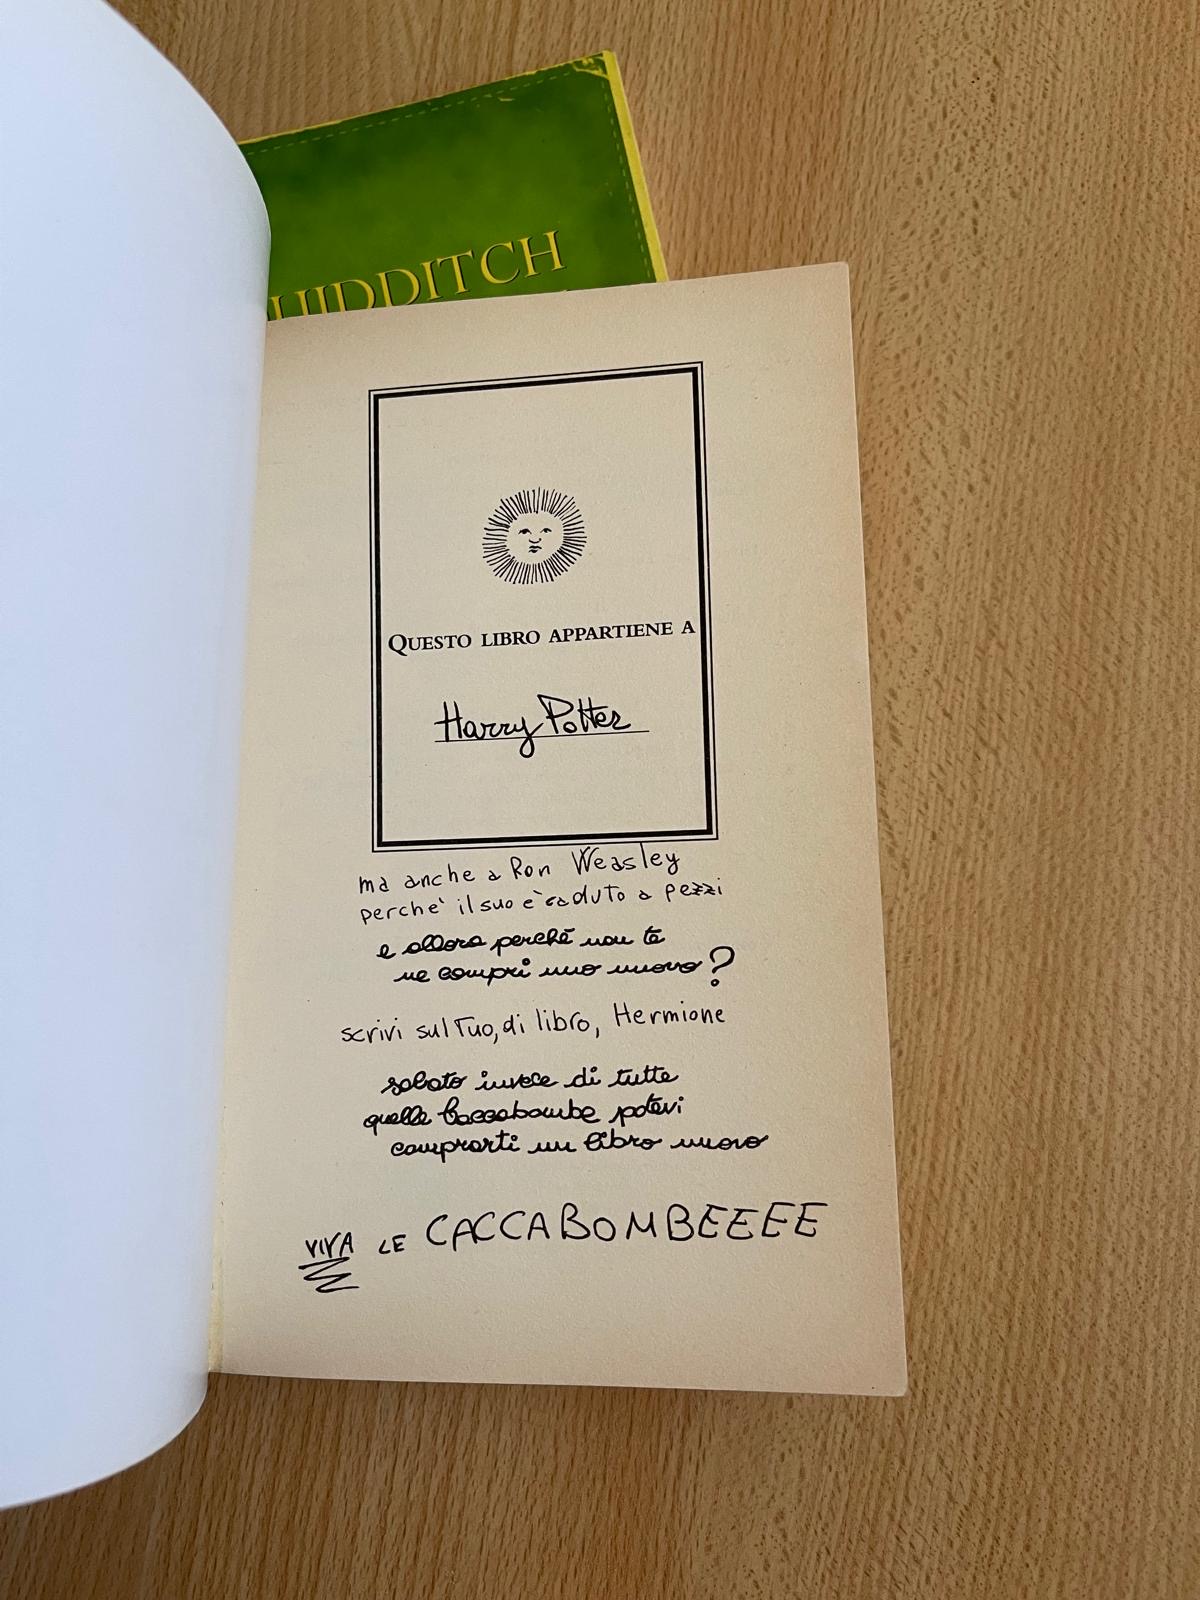 UIDDITCH
QUESTO LIBRO APPARTIENE A
Harry Potter
ma anche a Ron Weasley
perche' il suo è caduto a pezzi
e allora perché non te
ne compri uno nuovo?
scrivi sul Tuo, di libro, Hermione
sabato invece di tutte
quelle Caccabombe potevi
comprarti un libro nuovo
VIVA LE CACCABOMBEEEE